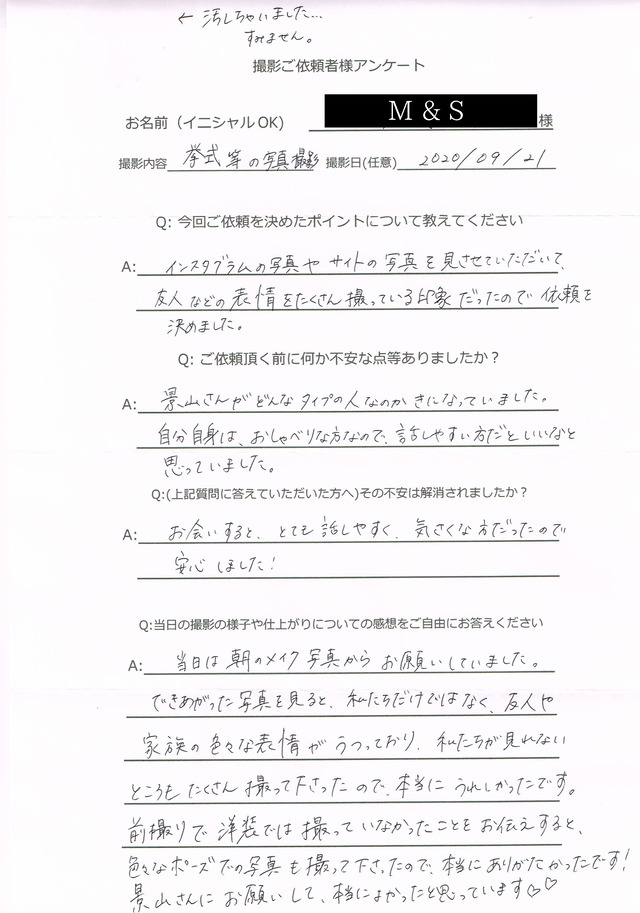 ← 汚しちゃいました…
すみません。
撮影ご依頼者様アンケート
お名前（イニシャルOK） M & S 様
撮影内容 挙式等の写真撮影 撮影日(任意) 2020/09/21
Q: 今回ご依頼を決めたポイントについて教えてください
A: インスタグラムの写真やサイトの写真を見させていただいて、
友人などの表情をたくさん撮っている印象だったので依頼を
決めました。
Q: ご依頼頂く前に何か不安な点等ありましたか？
A: 景山さんがどんなタイプの人なのかきになっていました。
自分自身は、おしゃべりな方なので、話しやすい方だといいなと
思っていました。
Q:(上記質問に答えていただいた方へ)その不安は解消されましたか？
A: お会いすると、とても話しやすく、気さくな方だったので
安心しました！
Q:当日の撮影の様子や仕上がりについての感想をご自由にお答えください
A: 当日は朝のメイク写真からお願いしていました。
できあがった写真を見ると、私たちだけではなく、友人や
家族の色々な表情がうつっており、私たちが見れない
ところもたくさん撮って下さったので、本当にうれしかったです。
前撮りで洋装では撮っていなかったことをお伝えすると、
色々なポーズでの写真も撮って下さったので、本当にありがたかったです！
景山さんにお願いして、本当によかったと思っています♡♡